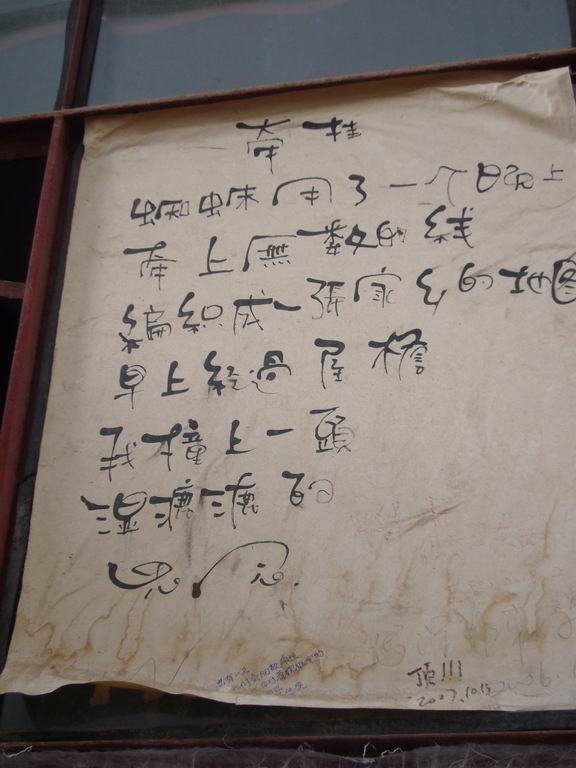 牵挂
蜘蛛用了一个晚上
牵上無数的线
编织成一張家乡的地图
早上经過屋檐
我撞上一頭
湿漉漉的
思念.
也有一天
顶!!!
2007.10.15